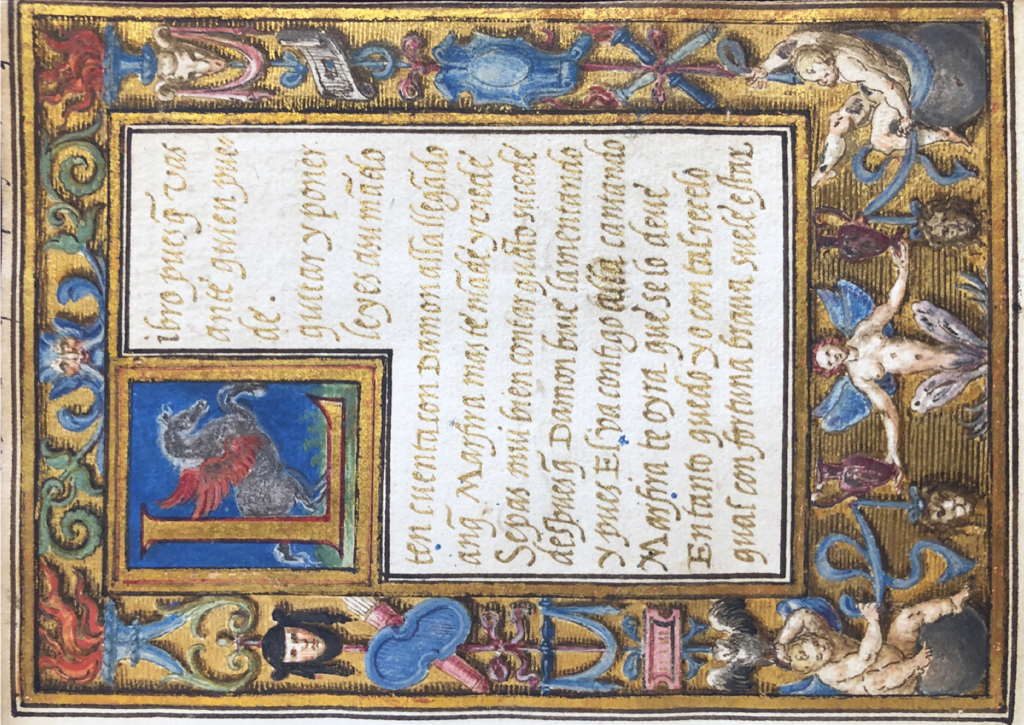 Libro pues q̃ vas
ante quien pue
de.
quitar y poner
leyes a su mãdo
ten cuenta con Damon alla llegãdo
anq̃ Marfira mas te mãde y uede
Sepas mui bien contar quãto sucede
despues q̃ Damon biue lamentando
Y pues El va contigo alla cantando
Marfira te oyra que se lo deue
En tanto quedo yo con tal recelo
qual con fortuna braua suel destar